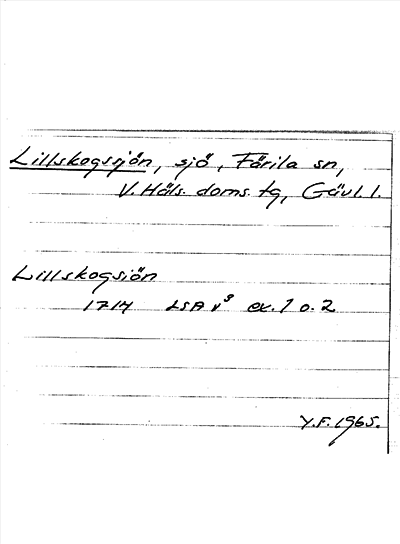 Lillskogssjön, sjö, Färila sn,
V. Häls. doms. tg, Gävl. l.
Lillskogsiön
1714 LSA v⁹ ex. 1 o. 2
Y.F. 1965.